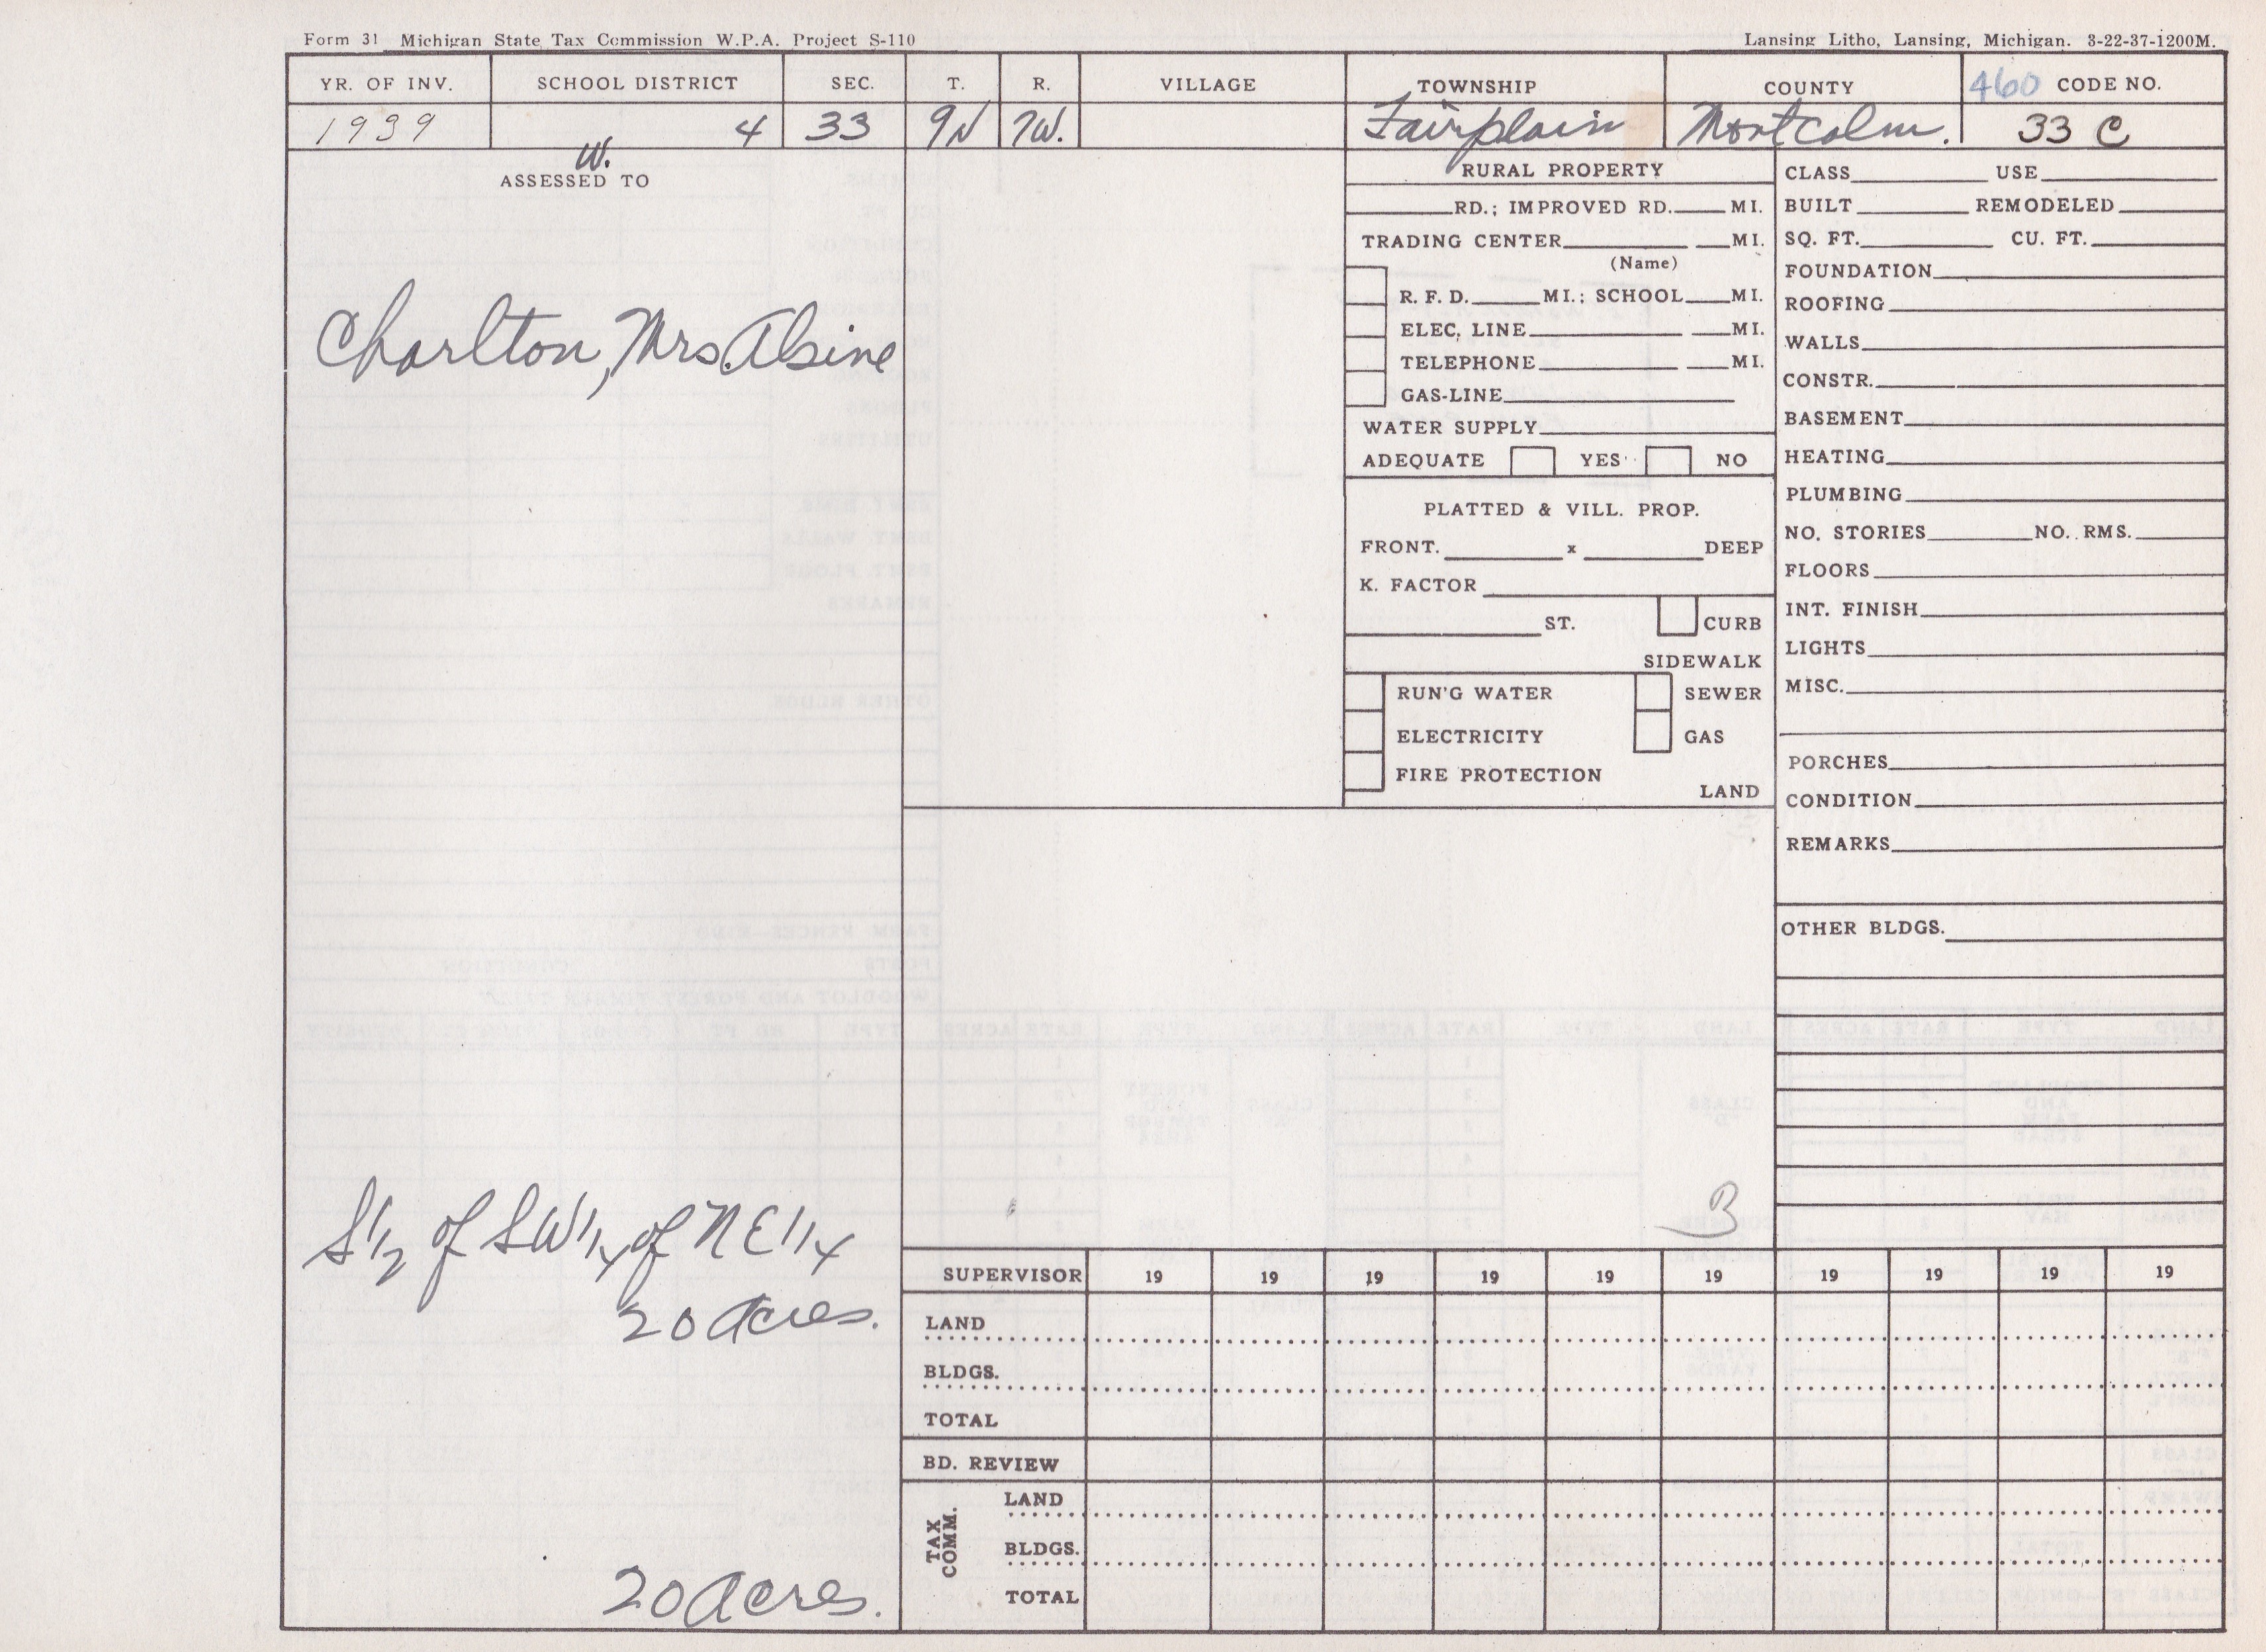 Form 31 Michigan State Tax Commission W.P.A. Project S-110
Lansing Litho, Lansing, Michigan. 3-22-37-1200M.
YR. OF INV. SCHOOL DISTRICT SEC. T. R. VILLAGE TOWNSHIP COUNTY 460 CODE NO.
1939 4 33 9N 7W. Fairplain Montcalm. 33 C
W.
ASSESSED TO
Charlton, Mrs. Alsine
S1/2 of SW1/4 of NE1/4
20 Acres.
20 Acres.
RURAL PROPERTY
RD.; IMPROVED RD. MI.
TRADING CENTER MI.
(Name)
R. F. D. MI.; SCHOOL MI.
ELEC. LINE MI.
TELEPHONE MI.
GAS-LINE
WATER SUPPLY
ADEQUATE YES NO
PLATTED & VILL. PROP.
FRONT. x DEEP
K. FACTOR
ST. CURB
SIDEWALK
RUN'G WATER SEWER
ELECTRICITY GAS
FIRE PROTECTION
LAND
CLASS USE
BUILT REMODELED
SQ. FT. CU. FT.
FOUNDATION
ROOFING
WALLS
CONSTR.
BASEMENT
HEATING
PLUMBING
NO. STORIES NO. RMS.
FLOORS
INT. FINISH
LIGHTS
MISC.
PORCHES
CONDITION
REMARKS
OTHER BLDGS.
B
SUPERVISOR 19 19 19 19 19 19 19 19 19 19
LAND
BLDGS.
TOTAL
BD. REVIEW
TAX COMM.
LAND
BLDGS.
TOTAL